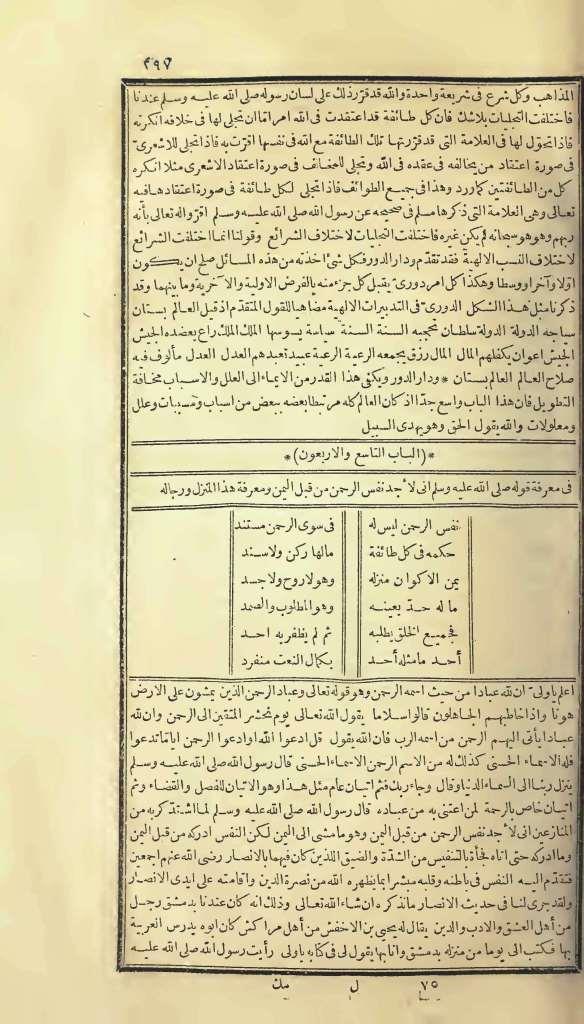 ٢٩٧
المذاهب وكل شرع فى شريعة واحدة والله قد قرر ذلك على لسان رسوله صلى الله عليه وسلم عندنا
فاختلفت التجليات بلا شك فان كل طائفة قد اعتقدت فى الله امرا ما ان تجلى لها فى خلافه انكرته
فاذا تحول لها فى العلامة التى قد قررتها تلك الطائفة مع الله فى نفسها اقرت به فاذا تجلى للاشعرى
فى صورة اعتقاد من يخالفه فى عقده فى الله وتجلى للمخالف فى صورة اعتقاد الاشعرى مثلا انكره
كل من الطائفتين كما ورد وهذا فى جميع الطوائف فاذا تجلى لكل طائفة فى صورة اعتقادها فيه
تعالى وهى العلامة التى ذكرها مسلم فى صحيحه عن رسول الله صلى الله عليه وسلم اقروا له تعالى بأنه
ربهم وهو هو سبحانه لم يكن غيره فاختلفت التجليات لاختلاف الشرائع وقولنا انما اختلفت الشرائع
لاختلاف النسب الالهية فقد تقدم ودار الدور فكل شئ اخذته من هذه المسائل صلح ان يكون
اولا وآخرا ووسطا وهكذا كل امر دورى يقبل كل جزء منه بالفرض الاولية والآخرية وما بينهما وقد
ذكرنا مثل هذا الشكل الدورى فى التدبيرات الالهية مضاهيا للقول المتقدم اذ قيل العالم بستان
سياجه الدولة الدولة سلطان تحجبه السنة السنة سياسة يسوسها الملك الملك راع يعضده الجيش
الجيش اعوان يكفلهم المال المال رزق يجمعه الرعية الرعية عبيد تعبدهم العدل العدل مألوف فيه
صلاح العالم العالم بستان * ودار الدور ويكفى هذا القدر من الايماء الى العلل والاسباب مخافة
التطويل فان هذا الباب واسع جدا اذ كان العالم كله مرتبطا بعضه ببعض من اسباب ومسببات وعلل
ومعلولات والله يقول الحق وهو يهدى السبيل
*(الباب التاسع والاربعون)*
فى معرفة قوله صلى الله عليه وسلم انى لاجد نفس الرحمن من قبل اليمن ومعرفة هذا المنزل ورجاله
نفس الرحمن ليس له فى سوى الرحمن مستند
حكمه فى كل طائفة مالها ركن ولا سند
يمن الاكوان منزله وهو لا روح ولا جسد
ما له حد يعينه وهو المطلوب والصمد
فجميع الخلق يطلبه ثم لم يظفر به احد
أحد ما مثله أحد بكمال النعت منفرد
اعلم يا ولى ان لله عبادا من حيث اسمه الرحمن وهو قوله تعالى وعباد الرحمن الذين يمشون على الارض
هونا واذا خاطبهم الجاهلون قالوا سلاما يقول الله تعالى يوم نحشر المتقين الى الرحمن وان لله
عبادا يأتى اليهم الرحمن من اسمه الرب فان الله يقول قل ادعوا الله او ادعوا الرحمن اياما تدعوا
فله الاسماء الحسنى كذلك له من الاسم الرحمن الاسماء الحسنى قال رسول الله صلى الله عليه وسلم
ينزل ربنا الى السماء الدنيا وقال وجاء ربك فثم اتيان عام مثل هذا وهو الاتيان للفصل والقضاء وثم
اتيان خاص بالرحمة لمن اعتنى به من عباده قال رسول الله صلى الله عليه وسلم لما اشتد كربه من
المنازعين انى لاجد نفس الرحمن من قبل اليمن وهو ما مشى الى اليمن لكن النفس ادركه من قبل اليمن
وما ادركه حتى اتاه فجأة بالتنفيس من الشدة والضيق اللذين كان فيهما بالانصار رضى الله عنهم اجمعين
فتقدم اليه النفس فى باطنه وقلبه مبشرا بما يظهره الله من نصرة الدين واقامته على ايدى الانصار
ولقد جرى لنا فى حديث الانصار ما نذكره ان شاء الله تعالى وذلك انه كان عندنا بدمشق رجل
من أهل العشق والادب والدين يقال له يحيى بن الاخفش من أهل مراكش كان ابوه يدرس العربية
بها فكتب الى يوما من منزله بدمشق وانا بها يقول لى فى كتابه يا ولى رأيت رسول الله صلى الله عليه
٧٥ ل مك